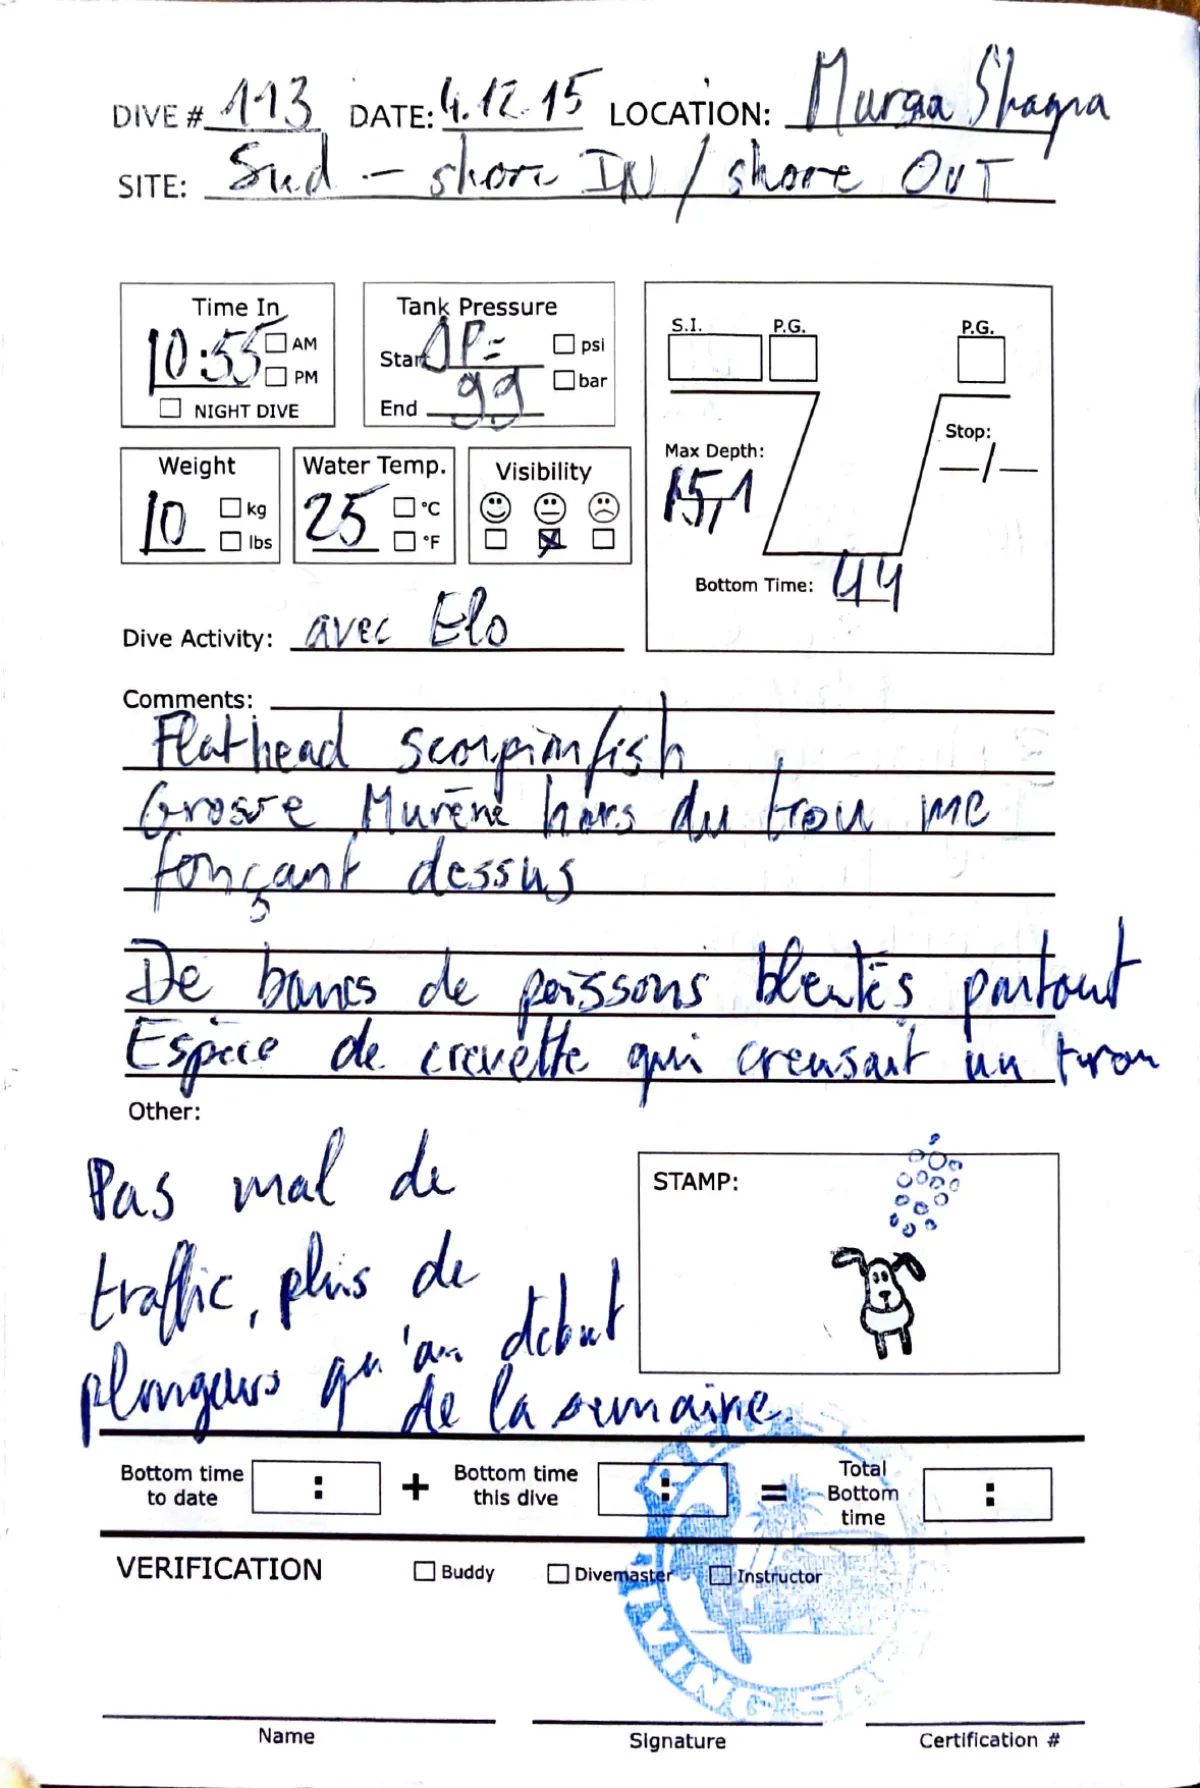 DIVE # 113 DATE: 4.12.15 LOCATION: Mursa Shagra
SITE: Sud - shore IN / shore OUT
Time In
10:55 AM
PM
NIGHT DIVE
Tank Pressure
Start ΔP= psi
bar
End 99
S.I. P.G. P.G.
Max Depth:
15,1
Stop:
/
Bottom Time: 44
Weight
10 kg
lbs
Water Temp.
25 °C
°F
Visibility
Dive Activity: avec Elo
Comments:
Flathead scorpionfish
Grosse Murène hors du trou me
fonçant dessus
De bancs de poissons bleutés partout
Espèce de crevette qui creusait un trou
Other:
Pas mal de
traffic, plus de
plongeurs qu'au début
de la semaine.
STAMP:
Bottom time
to date : + Bottom time
this dive : = Total
Bottom
time :
VERIFICATION Buddy Divemaster Instructor
DIVING
Name Signature Certification #